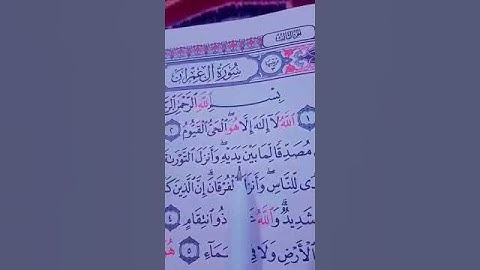 الجزء الثالث
سُورَةُ آلِ عِمْرَانَ
بِسْمِ اللَّهِ الرَّحْمَٰنِ
١ اللَّهُ لَا إِلَٰهَ إِلَّا هُوَ الْحَيُّ الْقَيُّومُ ٢
مُصَدِّقًا لِمَا بَيْنَ يَدَيْهِ وَأَنزَلَ التَّوْرَىٰةَ
لِلنَّاسِ وَأَنزَلَ الْفُرْقَانَ إِنَّ الَّذِينَ
شَدِيدٌ وَاللَّهُ ذُو انتِقَامٍ ٤
الْأَرْضِ وَلَا فِي السَّمَاءِ ٥ هُوَ